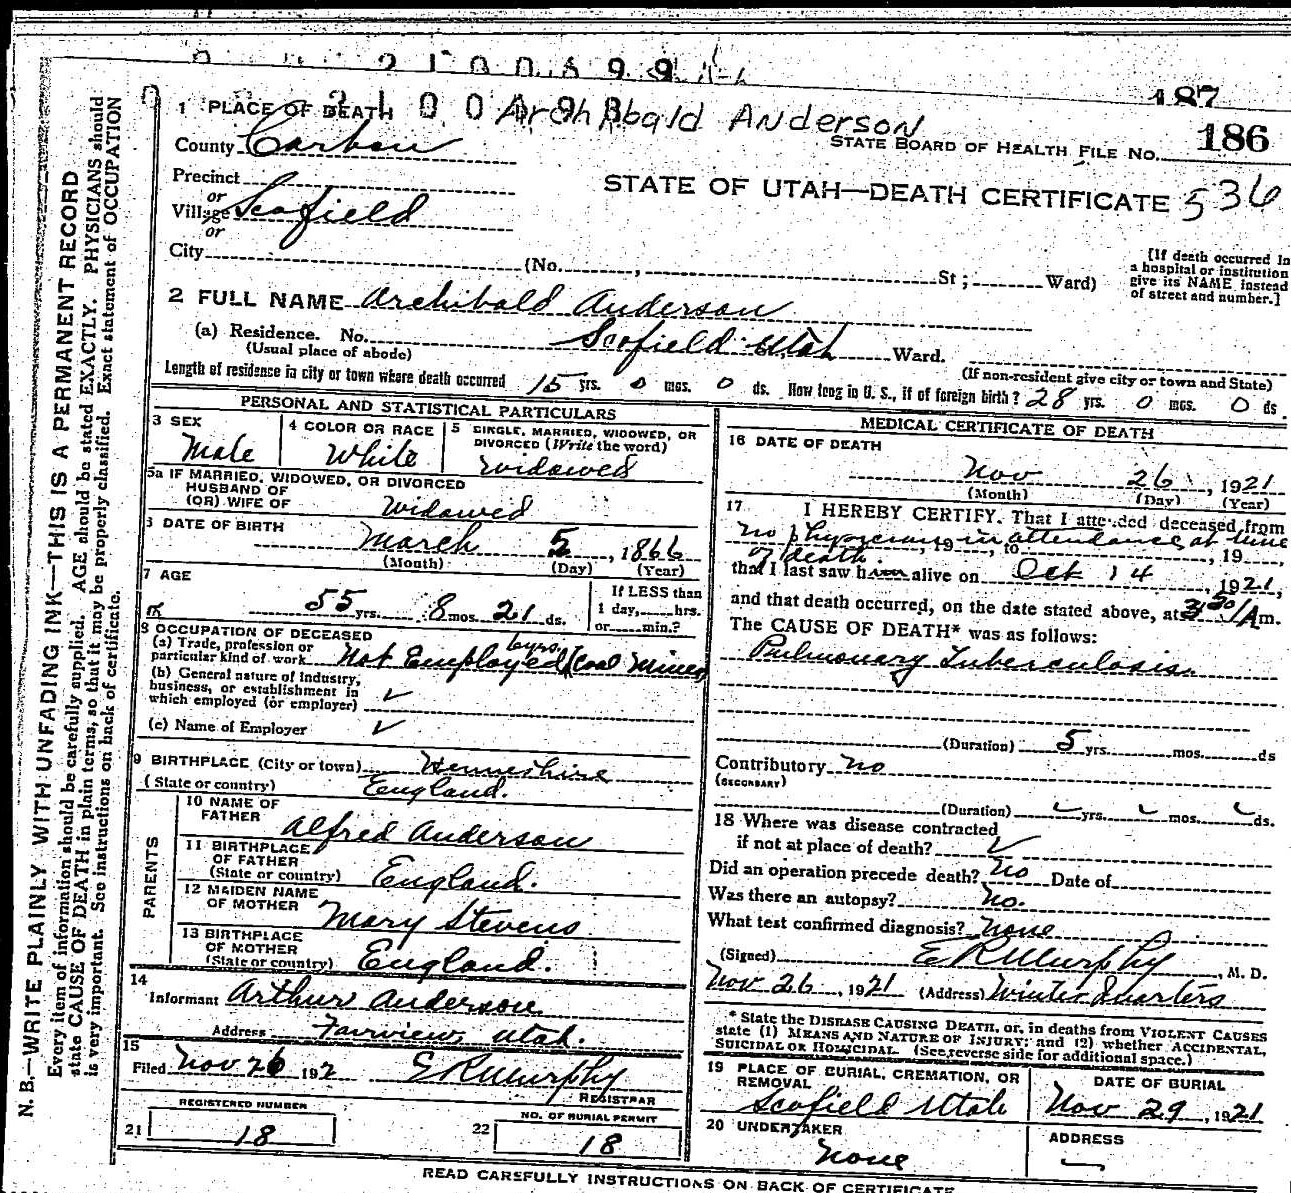 2100599
187
2100598
Archibald Anderson
1 PLACE OF DEATH
STATE BOARD OF HEALTH FILE No. 186
County Carbon
STATE OF UTAH—DEATH CERTIFICATE 536
Precinct
or
Village Scofield
or
City (No. , St ; Ward)
[If death occurred in
a hospital or institution
give its NAME instead
of street and number.]
2 FULL NAME Archibald Anderson
(a) Residence. No. Scofield Utah Ward.
(Usual place of abode)
(If non-resident give city or town and State)
Length of residence in city or town where death occurred 15 yrs. 0 mos. 0 ds. How long in U. S., if of foreign birth? 28 yrs. 0 mos. 0 ds.
PERSONAL AND STATISTICAL PARTICULARS
3 SEX
Male
4 COLOR OR RACE
White
5 SINGLE, MARRIED, WIDOWED, OR
DIVORCED (Write the word)
Widowed
5a IF MARRIED, WIDOWED, OR DIVORCED
HUSBAND OF
(OR) WIFE OF Widowed
6 DATE OF BIRTH
March 5, 1866
(Month) (Day) (Year)
7 AGE
55 yrs. 8 mos. 21 ds.
If LESS than
1 day, hrs.
or min.?
8 OCCUPATION OF DECEASED
(a) Trade, profession or
particular kind of work Not Employed 6 yrs. (Coal Miner)
(b) General nature of industry,
business, or establishment in
which employed (or employer)
(c) Name of Employer
9 BIRTHPLACE (City or town)
(State or country) England.
PARENTS
10 NAME OF
FATHER Alfred Anderson
11 BIRTHPLACE
OF FATHER
(State or country) England.
12 MAIDEN NAME
OF MOTHER Mary Stevens
13 BIRTHPLACE
OF MOTHER
(State or country) England.
14
Informant Arthur Anderson
Address Fairview, Utah.
15
Filed Nov 26 192 E R Murphy
REGISTRAR
REGISTERED NUMBER
21 18
NO. OF BURIAL PERMIT
22 18
MEDICAL CERTIFICATE OF DEATH
16 DATE OF DEATH
Nov 26, 1921
(Month) (Day) (Year)
17 I HEREBY CERTIFY. That I attended deceased from
no physician in attendance at time
of death, 19 , to , 19 ,
that I last saw him alive on Oct 14, 1921,
and that death occurred, on the date stated above, at 3:30 A m.
The CAUSE OF DEATH* was as follows:
Pulmonary Tuberculosis
(Duration) 5 yrs. mos. ds
Contributory no
(SECONDARY)
(Duration) yrs. mos. ds.
18 Where was disease contracted
if not at place of death?
Did an operation precede death? no Date of
Was there an autopsy? No.
What test confirmed diagnosis? none
(Signed) E R Murphy, M. D.
Nov 26, 1921 (Address) Winter Quarters
* State the DISEASE CAUSING DEATH, or, in deaths from VIOLENT CAUSES
state (1) MEANS AND NATURE OF INJURY; and (2) whether ACCIDENTAL,
SUICIDAL OR HOMICIDAL. (See reverse side for additional space.)
19 PLACE OF BURIAL, CREMATION, OR
REMOVAL
Scofield Utah
DATE OF BURIAL
Nov 29, 1921
20 UNDERTAKER
None
ADDRESS
READ CAREFULLY INSTRUCTIONS ON BACK OF CERTIFICATE
N. B.—WRITE PLAINLY WITH UNFADING INK—THIS IS A PERMANENT RECORD
Every item of information should be carefully supplied. AGE should be stated EXACTLY. PHYSICIANS should
state CAUSE OF DEATH in plain terms, so that it may be properly classified. Exact statement of OCCUPATION
is very important. See instructions on back of certificate.